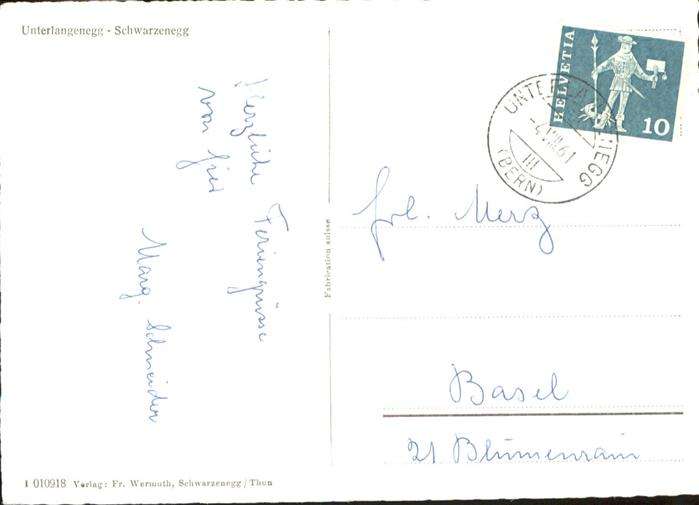 Unterlangenegg - Schwarzenegg
Herzliche Feriengrüsse
von hier
Marg. Schneider
Fabrication suisse
I 010918 Verlag: Fr. Wermuth, Schwarzenegg/Thun
HELVETIA
10
UNTERLA NEGG
-4.VIII.61
III
(BERN)
Frl. Merz
Basel
21 Blumenrain